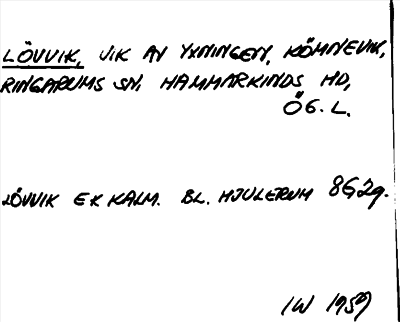 LÖVVIK, VIK AV YXNINGEN, KÖMNEVIK,
RINGARUMS SN, HAMMARKINDS HD,
ÖG. L.
LÖVVIK EK KALM. BL. HJULERUM 8G2g.
IW 1959